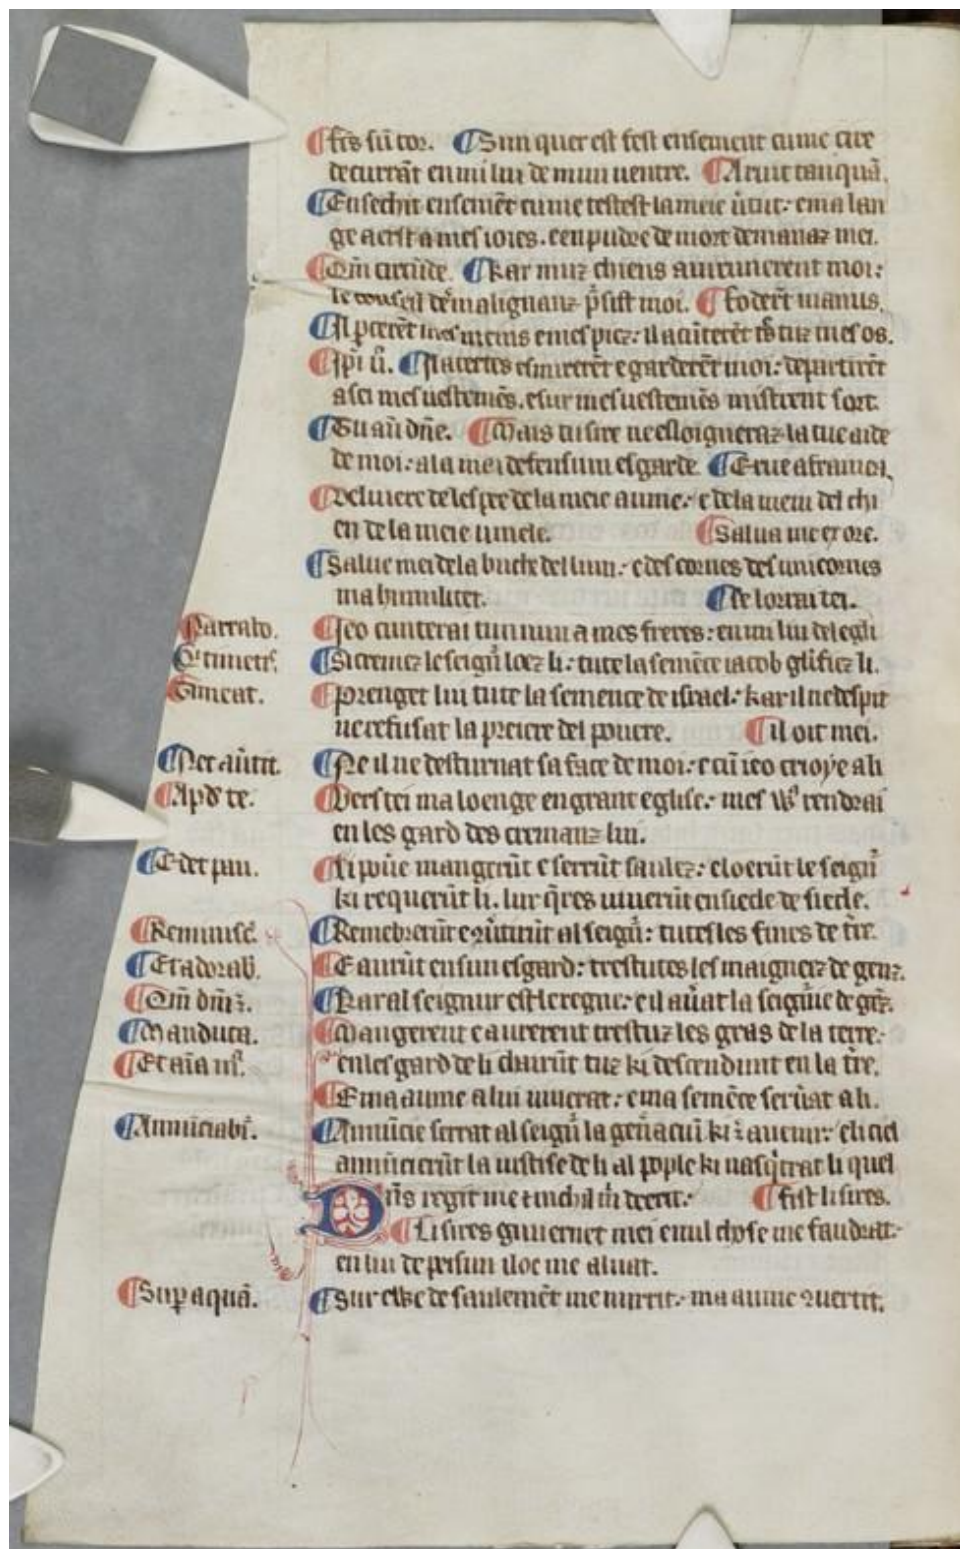 ¶ fc̄s sū cor. ¶ Mun quer est fest ensement cume cire
decurrāt en mi liu de mun uentre. ¶ Aruit tanquā.
¶ Ensechit ensemēt cume test est la meie ūtut: e ma lan
ge aerst a mes ioies. e en pudre de mort demanaz mei.
¶ Qm̄ circūde. ¶ Kar muz chiens auirunerent moi:
le conseil de malignanz p̄sist moi. ¶ foder̄t manus.
¶ Il ꝑcerēt mes meins e mes piez: il acūterēt tuz mes os.
¶ Ip̄i ū. ¶ Il acertes esmirerēt e garderēt moi: departirēt
a sei mes uestemēs. e sur mes uestemēs mistrent sort.
¶ Tu aū dn̄e. ¶ Mais tu sire ne esloigneraz la tue aide
de moi: a la mei defensiun esgarde. ¶ Erue a framea.
¶ Deliuere de lespee la meie aume: e de la mein del chi
en de la meie uncle. ¶ Salua me ex ore.
¶ Salue mei de la buche del liun: e des cornes des unicornes
ma humilitet. ¶ Ie lorrai tei.
¶ Narrabo. ¶ Ieo cunterai tun nun a mes freres: en mi liu del egli
¶ Qi timetis. ¶ Si cremez le seigн̄ loez li: tute la semēce iacob glīfiez li.
¶ Timeat. ¶ Prenget lui tute la semence de israel: kar il ne despit
ne refusat la preiere del poure. ¶ il oit mei.
¶ Nec aūtit. ¶ Ne il ne desturnat sa face de moi: e cū ieo crioye a li
¶ Apd̄ te. ¶ Vers tei ma loenge en grant eglise: mes ws̄ rendrai
en les gard des cremanz lui.
¶ Edet pau. ¶ Li pōue mangerūt e serrūt saulez: e loerūt le seign̄
ki requerūt li. lur q̄res uiuerūt en siecle de siecle.
¶ Reminiscē. ¶ Remēbrerūt e ꝯūtirūt al seign̄: tutes les fines de tr̄e.
¶ Et adorab̄. ¶ E aurūt en sun esgard: trestutes les maignez de genz.
¶ Qm̄ dm̄i ē. ¶ Kar al seignur est le regne: e il aūat la seigūie de gēz.
¶ Manduca. ¶ Mangerent e aurerent trestuz les gras de la terre:
¶ Et aīa ms̄. en les gard de li charūt tuz ki descendunt en la tr̄e.
¶ E ma aume a lui uiuerat: e ma semēce seruat a li.
¶ Annūciabit̄. ¶ Annūcie serrat al seign̄ la gen̄aciū ki ē auenir: e li ciel
annūcerūt la iustise de li al pople ki nasq̄trat li quel
Dn̄s regit me et nichil m̄ deerit: ¶ fist li sires.
¶ Li sires guuernet mei e nul chose me faudrat:
en liu de pesun iloc me aluat.
¶ Sup̄ aquā. ¶ Sur ewe de saulemēt me nurrit: ma aume ꝯuertit.